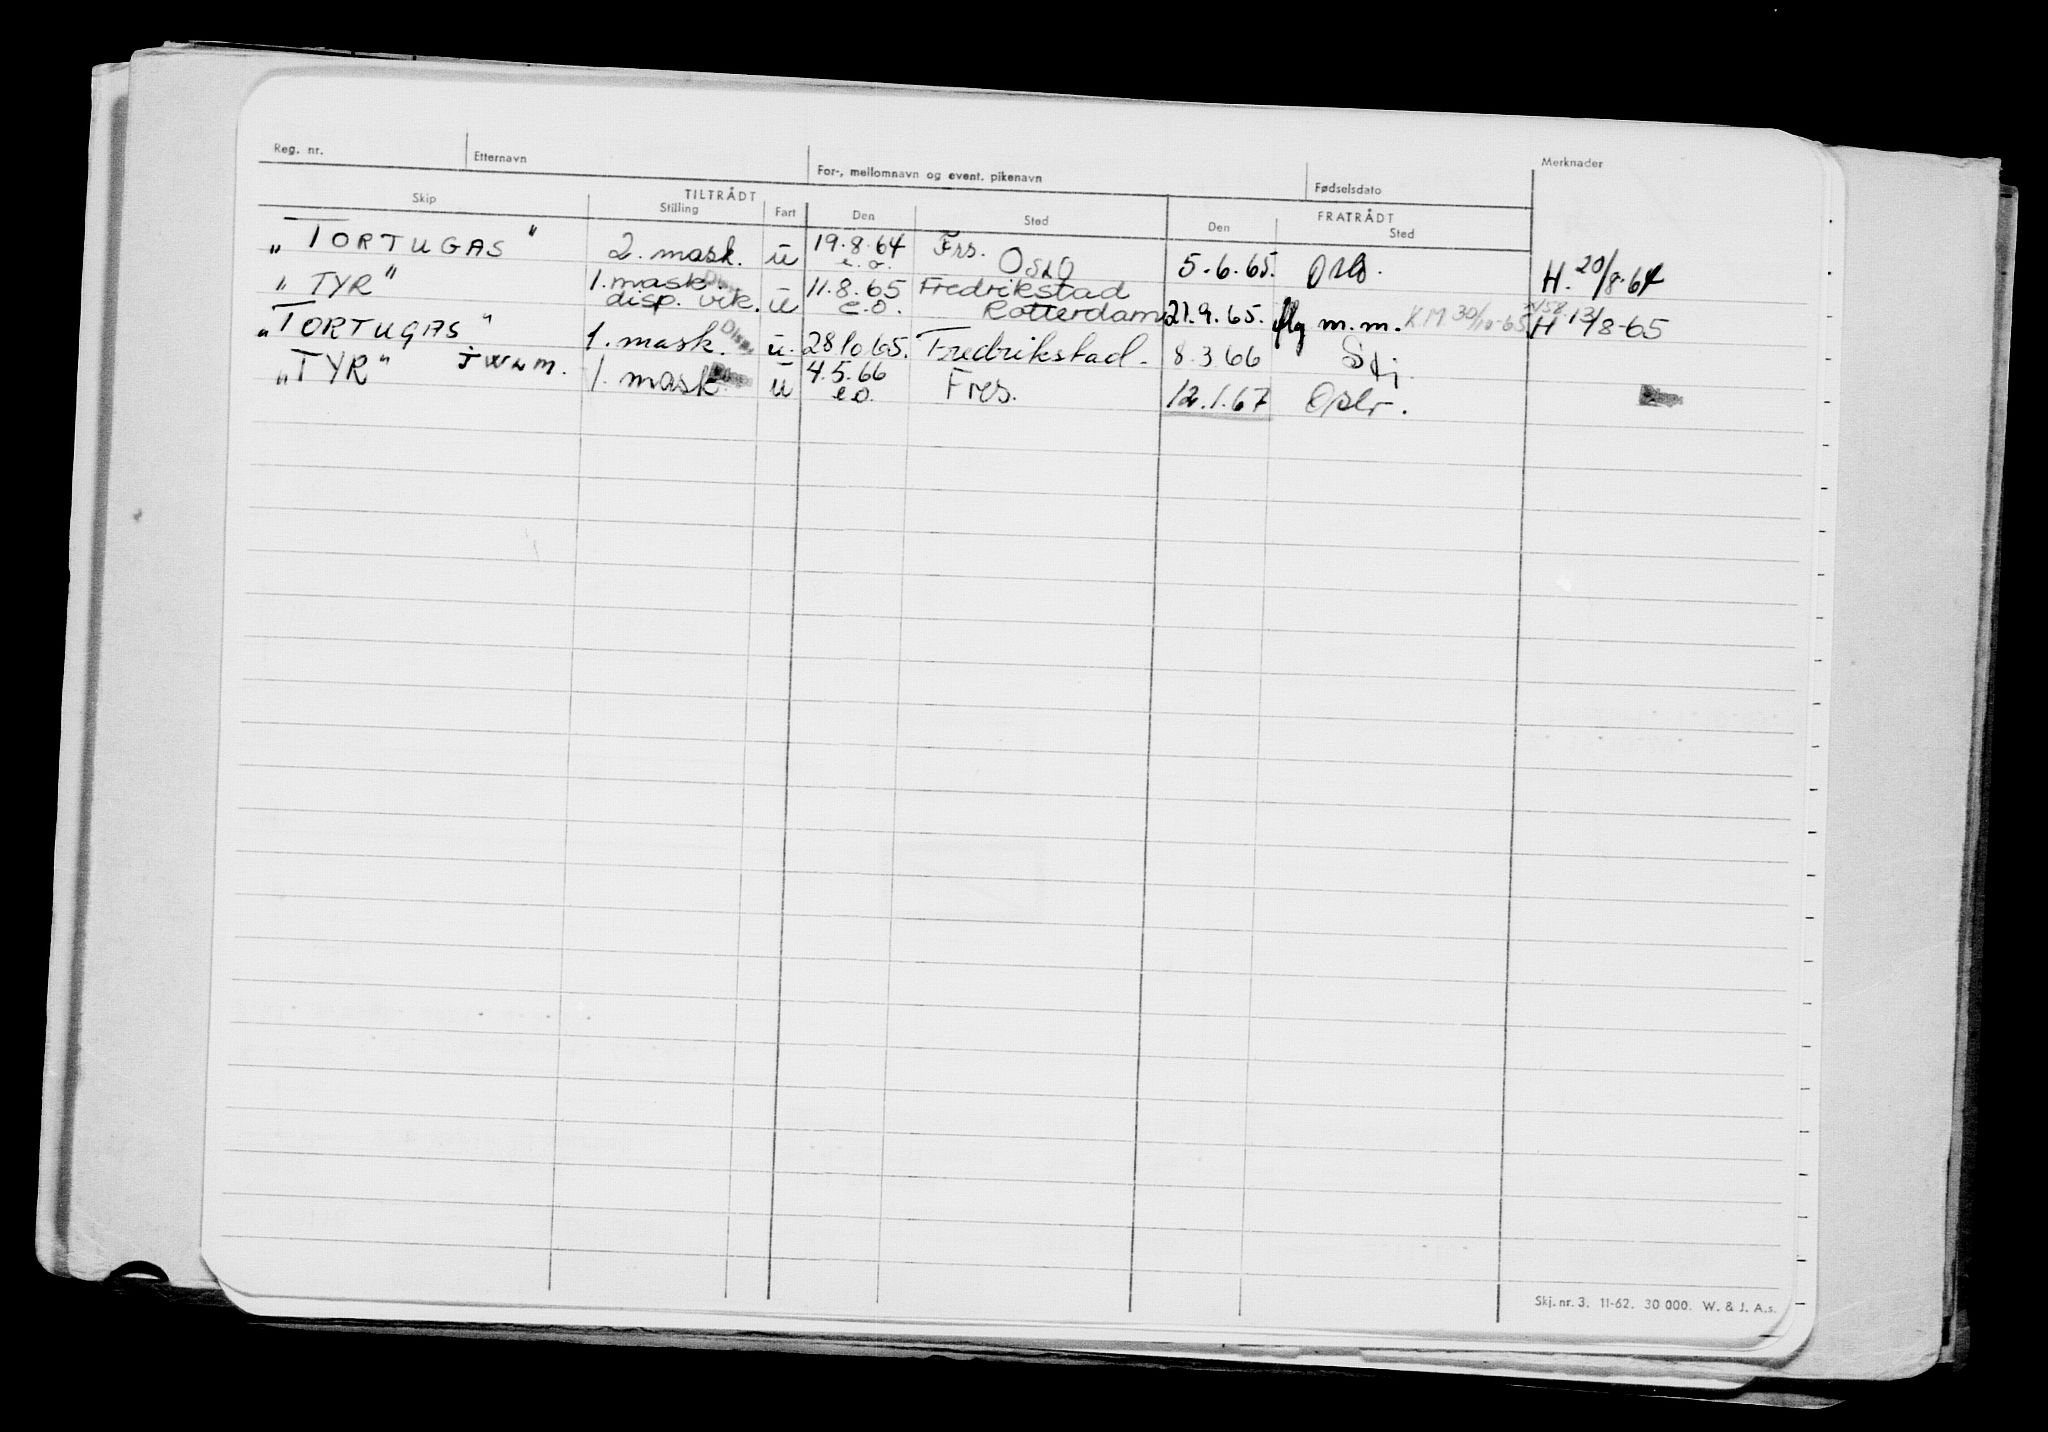 Reg. nr. Etternavn For-, mellomnavn og event. pikenavn Fødselsdato Merknader
TILTRÅDT FRATRÅDT
Skip Stilling Fart Den Sted Den Sted
„TORTUGAS" 2. mask. u 19.8.64 e.o. Frs. Oslo 5.6.65. Oslo. H. 20/8-64
"TYR" 1. mask. disp. vik. u 11.8.65 e.o. Fredrikstad Rotterdam 21.9.65. flg m.m. KM 30/10-65 H 13/8-65
„TORTUGAS" 1. mask. Disp. u. 28 10 65. Fredrikstad. 8.3 66
„TYR" 1. mask. u 4.5.66 e.o. Fres. 12.1.67 Oslo.
Skj. nr. 3. 11-62. 30 000. W. & J. A.s.